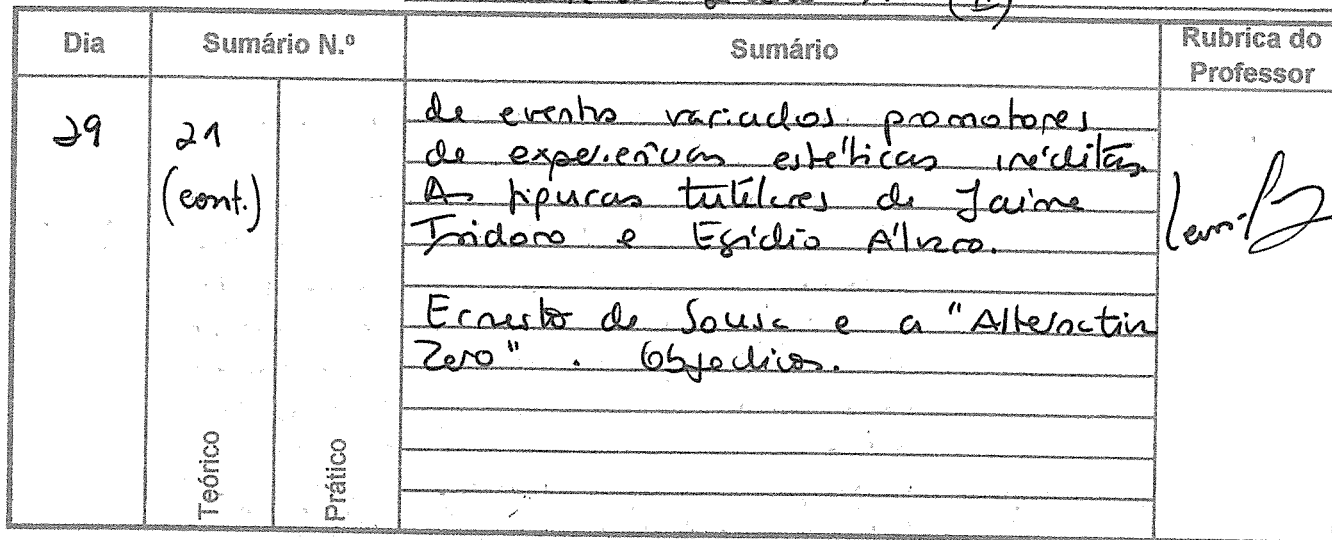 Dia Sumário N.º Sumário Rubrica do Professor
29 21 (cont.)
de eventos variados promotores
de experiências estéticas inéditas.
As figuras tutelares de Jaime
Isidoro e Egídio Álvaro.
Ernesto de Sousa e a "Alternativa
Zero". Objectivos.
Teórico
Prático